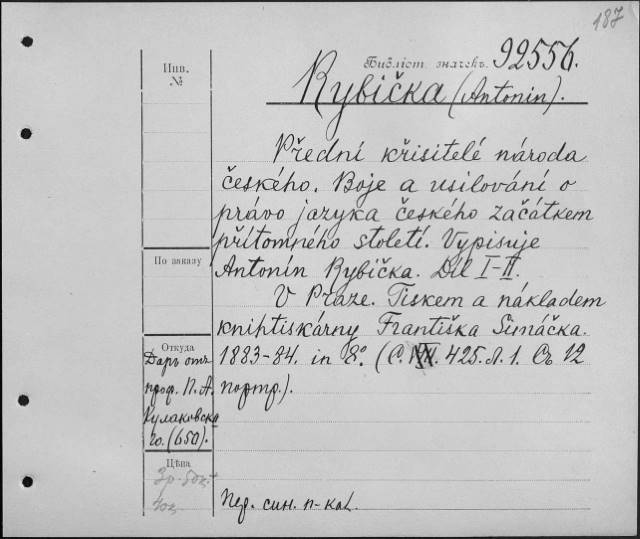 187
Библіот. значекъ. 92556.
Инв.
№
Rybička (Antonin).
Přední křisitelé národa
českého. Boje a usilování o
právo jazyka českého začátkem
přítomného století. Vypisuje
Antonín Rybička. Díl I-II.
По заказу
V Praze. Tiskem a nákladem
knihtiskárny Františka Šimáčka.
Откуда
1883-84. in 8.° (C. 425. Л. 1. Съ 12
портр.).
Даръ отъ
проф. П. А.
Кулаковска
го. (650).
Цѣна
3р. 50к.
Пер. син. п-кол.